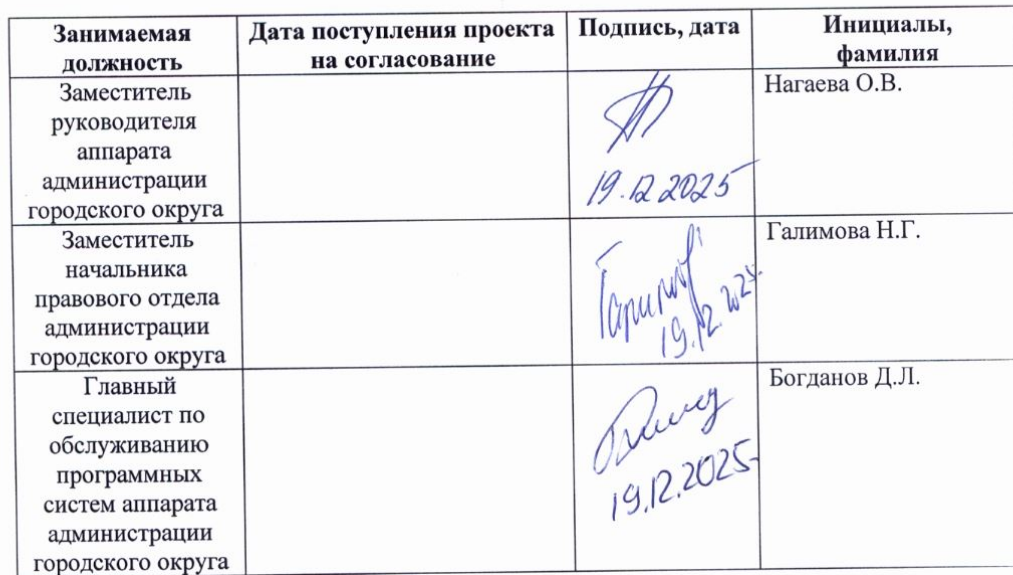 Занимаемая должность
Дата поступления проекта на согласование
Подпись, дата
Инициалы, фамилия
Заместитель
руководителя
аппарата
администрации
городского округа
19.12.2025
Нагаева О.В.
Заместитель
начальника
правового отдела
администрации
городского округа
19.12.2025
Галимова Н.Г.
Главный
специалист по
обслуживанию
программных
систем аппарата
администрации
городского округа
19.12.2025
Богданов Д.Л.